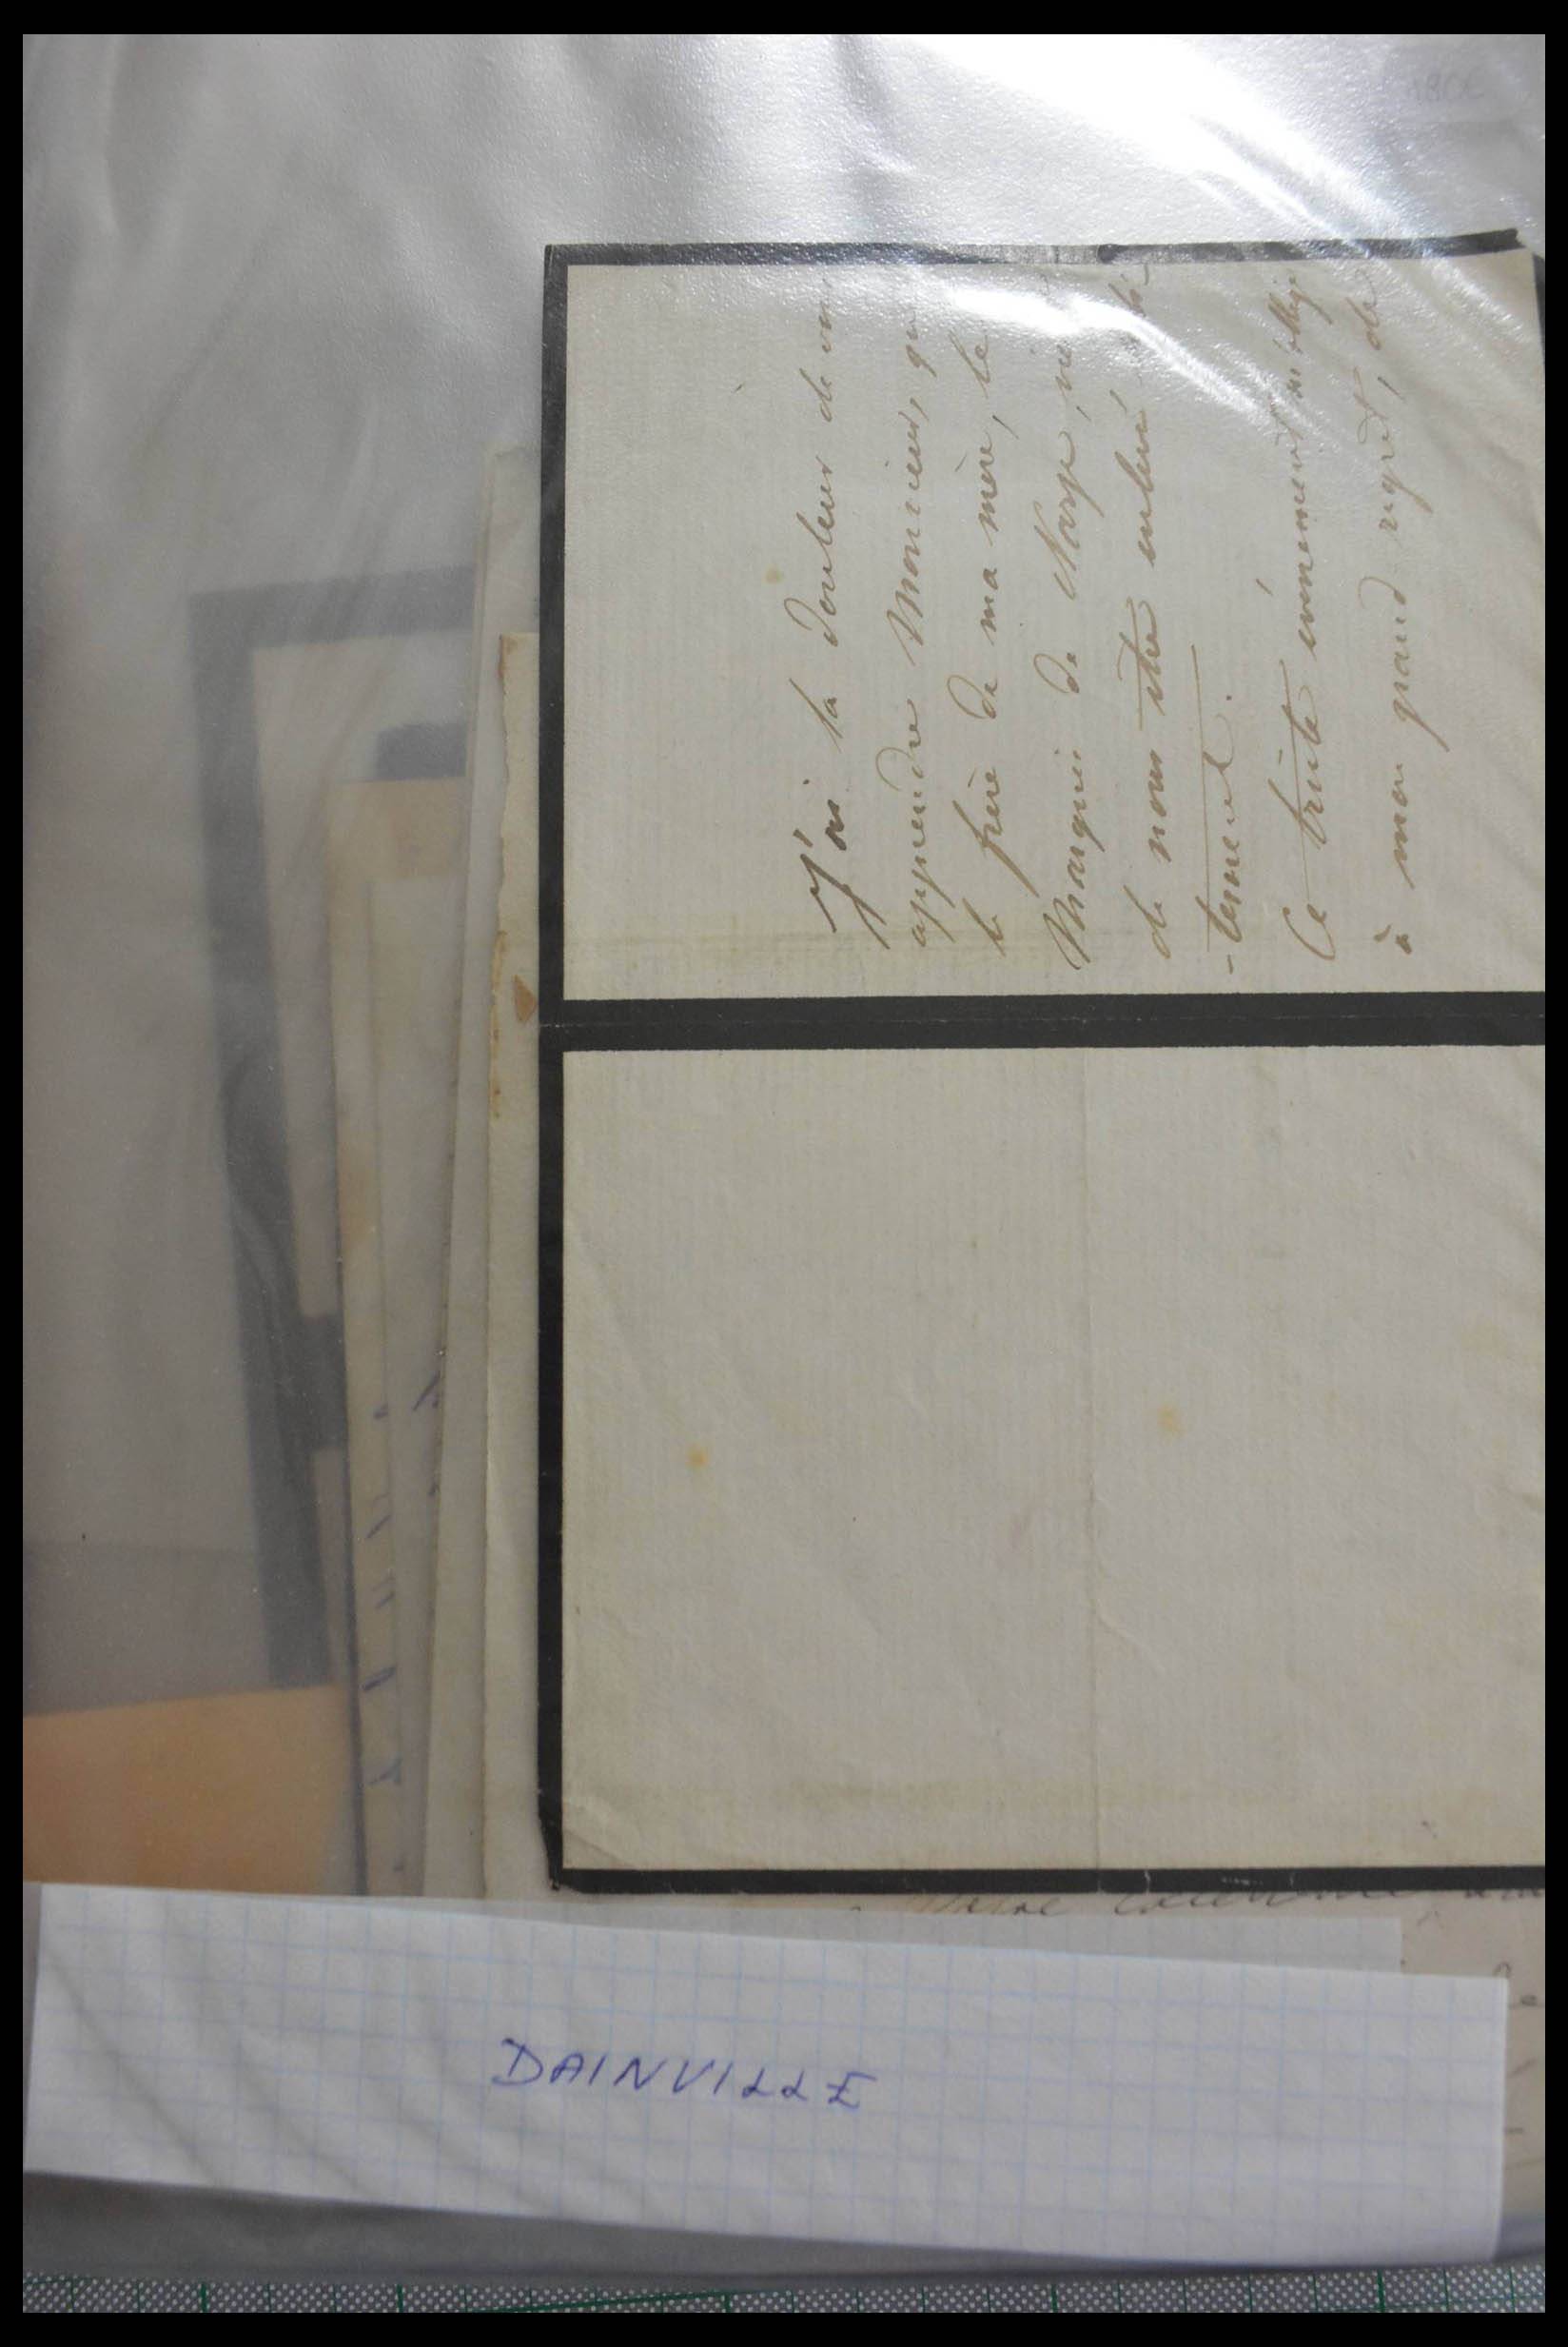 J'ai la douleur de vous
apprendre Monsieur, que
le frère de ma mère, le
Marquis de
de nous être enlevé
-tement.
Ce triste événement m'oblige
à mon grand regret, de
DAINVILLE